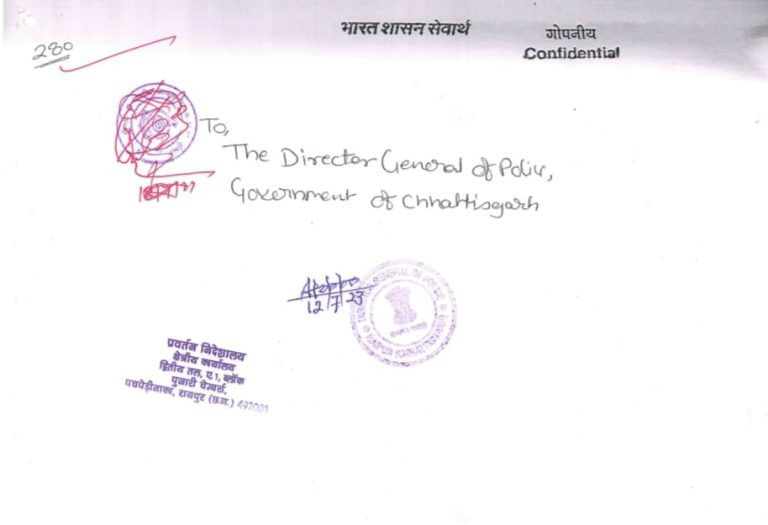 भारत शासन सेवार्थ
गोपनीय
Confidential
280
To,
The Director General of Police,
Government of Chhattisgarh
12/7/23
प्रवर्तन निदेशालय
क्षेत्रीय कार्यालय
द्वितीय तल, ए.1, ब्लॉक
पुजारी चेम्बर्स,
पचपेड़ीनाका, रायपुर (छ.ग.) 492001